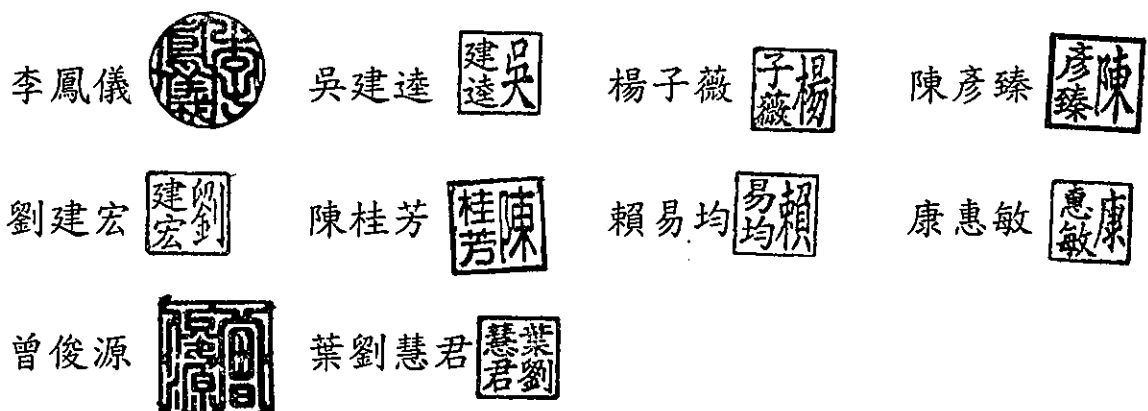 李鳳儀 吳建逵 吳建逵 楊子薇 楊子薇 陳彥臻 陳彥臻
劉建宏 劉建宏 陳桂芳 陳桂芳 賴易均 賴易均 康惠敏 康惠敏
曾俊源 葉劉慧君 葉劉慧君